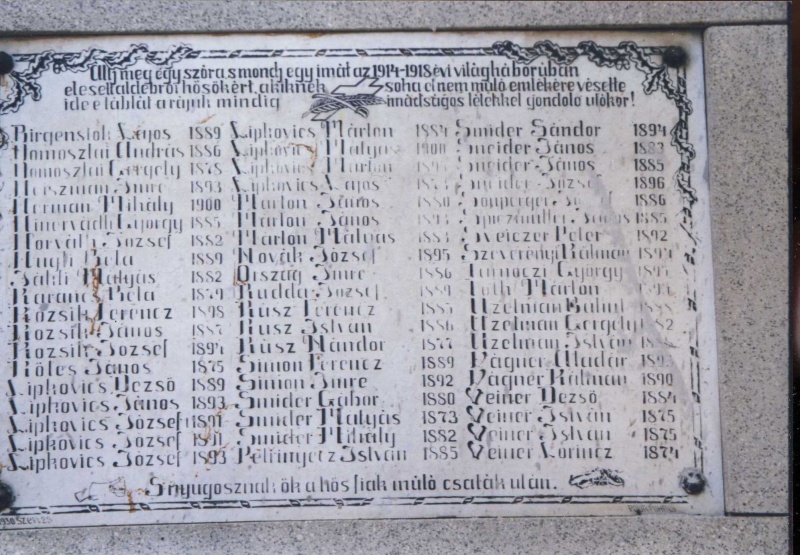 Állj meg egy szóra, s mondj egy imát az 1914-1918 évi világháborúban
elesett aldebrői hősökért, akiknek soha el nem múló emlékére vésette
ide e táblát a rájuk mindig imádságos lélekkel gondoló utókor!
Birgenstok Lajos 1889 Lipkovics Márton 1884 Snider Sándor 1894
Domoszlai András 1886 Lipkovics Mátyás 1900 Sneider János 1883
Domoszlai Gergely 1878 Lipkovics Márton Sneider János 1885
Herszman Imre 1893 Lipkovics Lajos József 1896
Herman Mihály 1900 Marton János 1880 1886
György 1885 Marton János 1893 János 1885
Horváth József 1882 Marton Mátyás 1884 Sveiczer Péter 1892
Hugli Béla 1889 Novák József 1895 Szeverényi Kálmán
Jakli Mátyás 1882 Ország Imre 1886 Tarnóczi György
Karancs Béla 1879 Rudda József 1889 Tóth Márton
Kozsik Ferencz 1898 Rusz Ferencz 1885 Uzelman Bálint
Kozsik János 1887 Rusz István 1886 Uzelman Gergely 1882
Kozsik József 1894 Rusz Nándor 1877 Uzelman István
Köles János 1875 Simon Ferencz 1889 Vágner Aladár 1893
Lipkovics Dezső 1889 Simon Imre 1892 Vágner Kálmán 1890
Lipkovics János 1893 Snider Gábor 1880 Veiner Dezső 1884
Lipkovics József 1891 Snider Mátyás 1873 Veiner István 1875
Lipkovics József 1891 Snider Mihály 1882 Veiner István 1875
Lipkovics József 1893 István 1885 Veiner Lőrincz 1874
S nyugosznak ők a hős fiak múló csaták után.